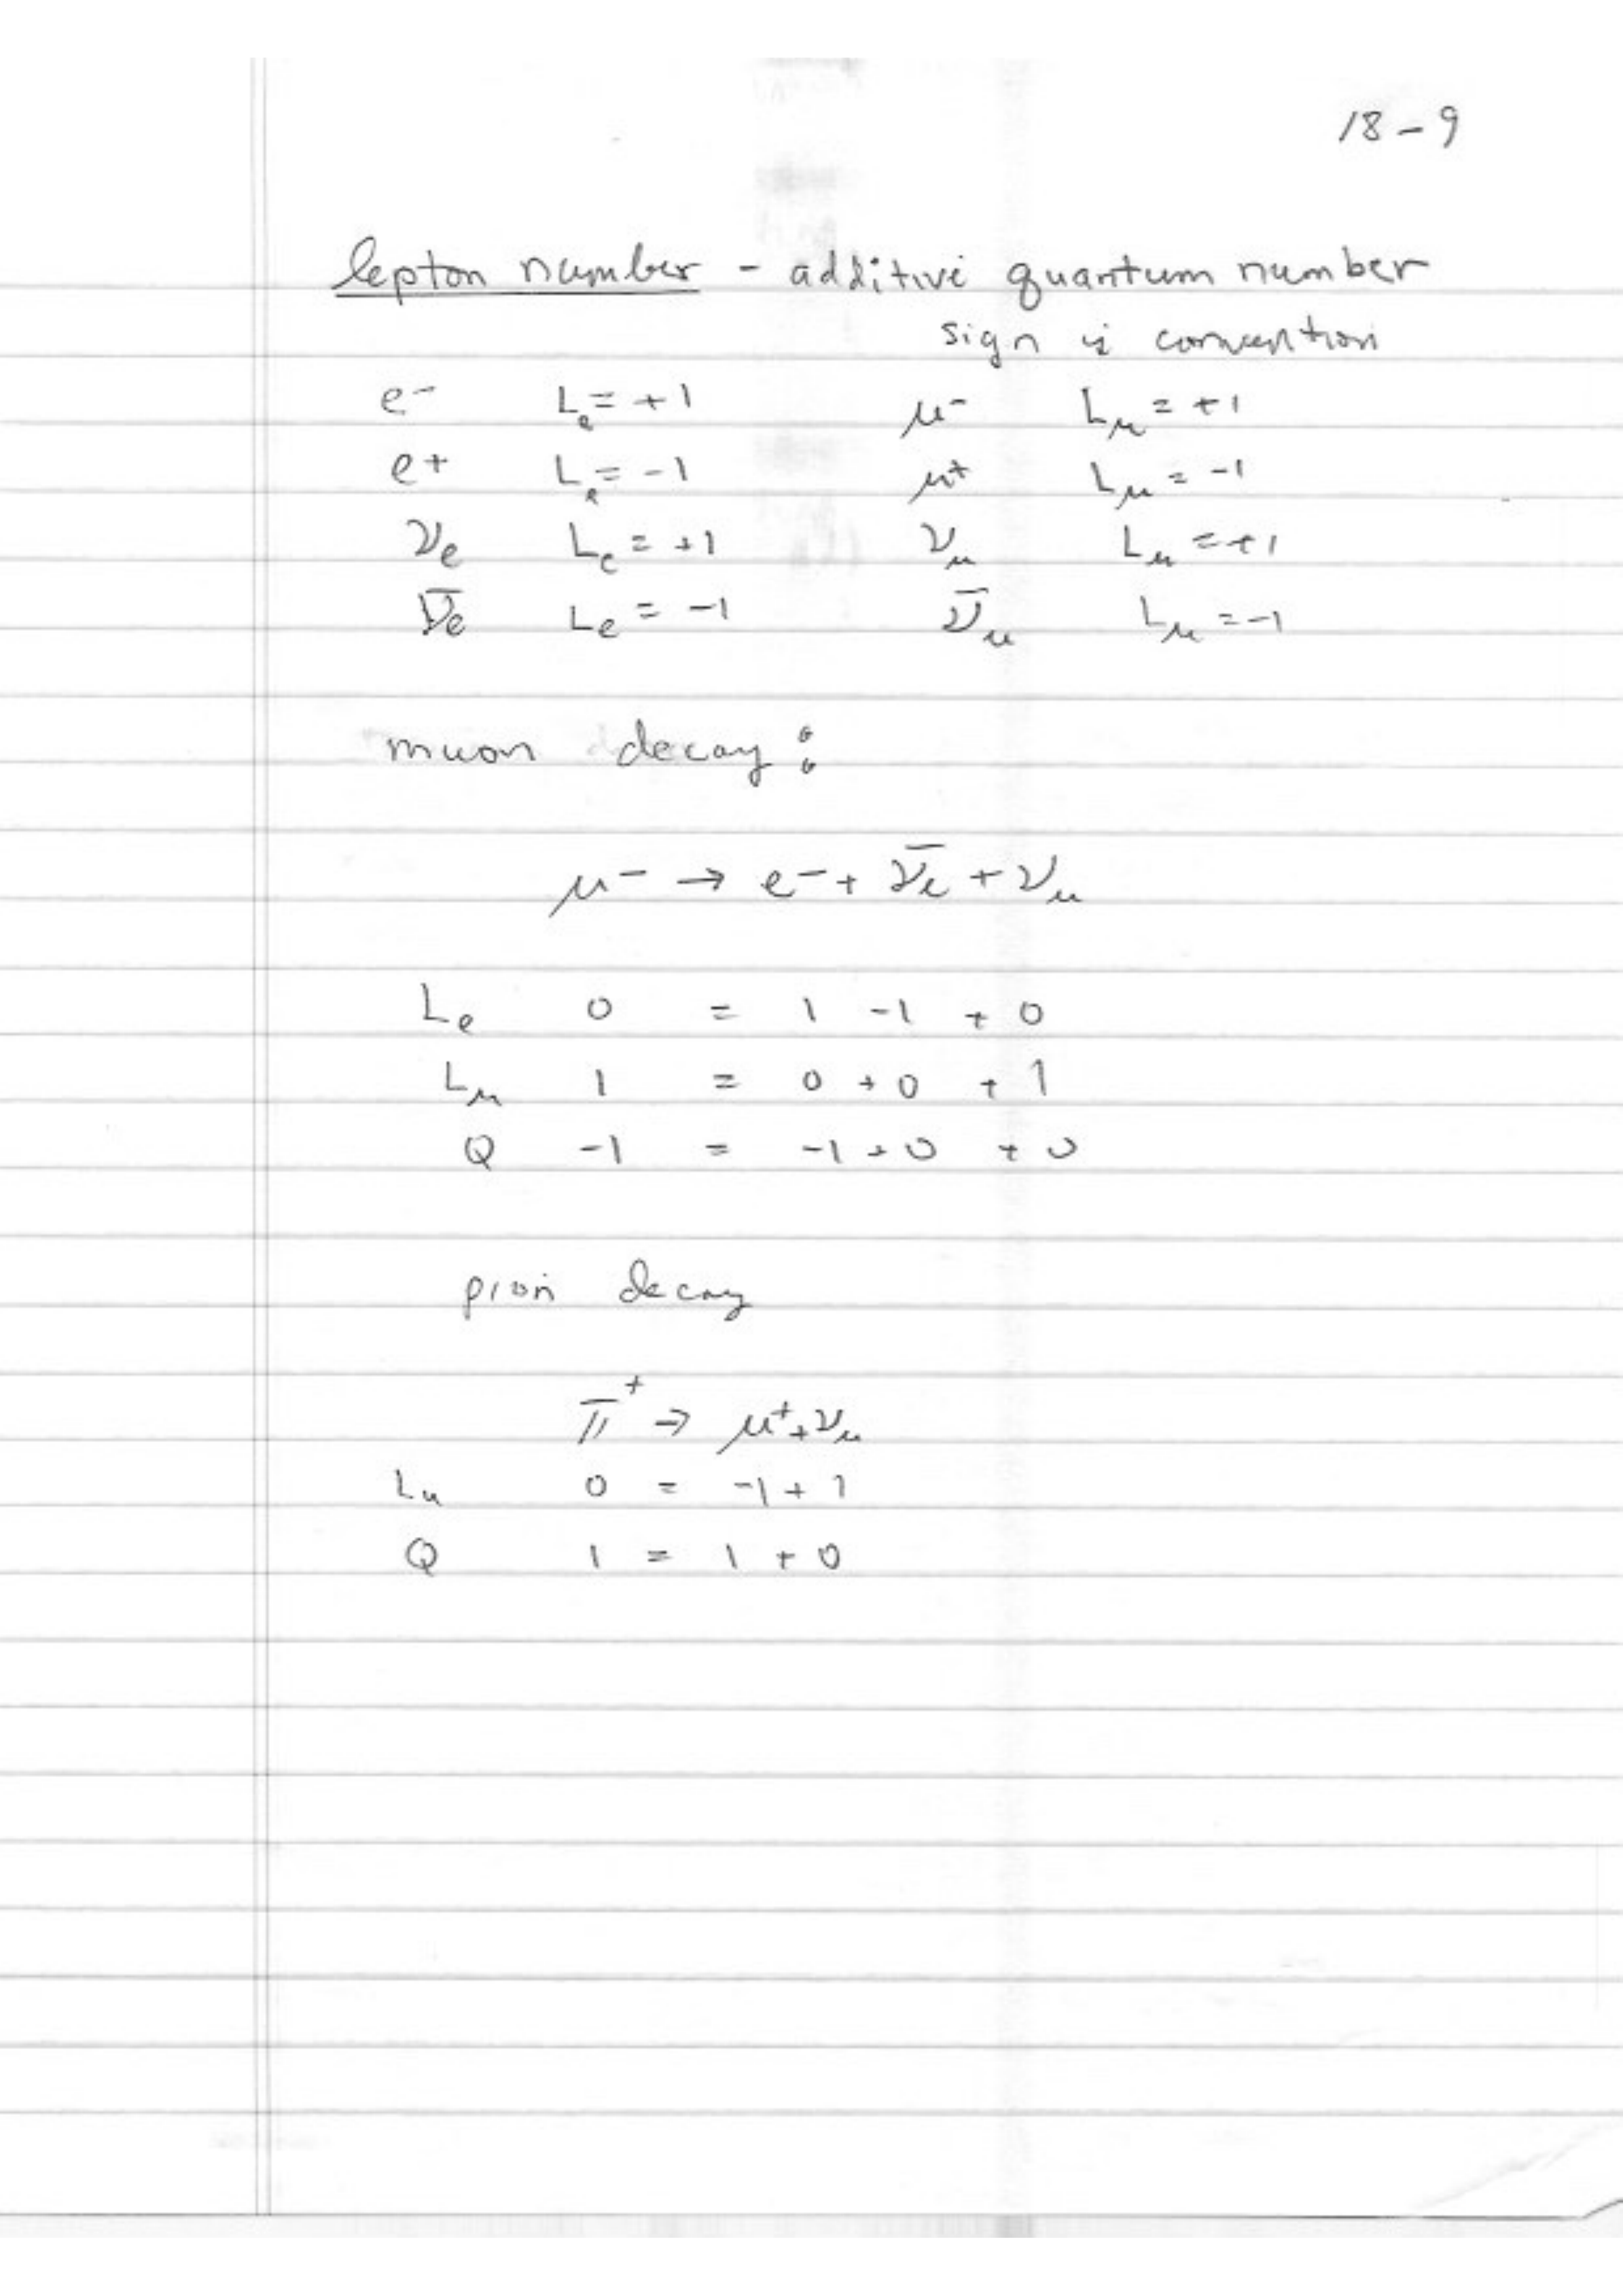 18-9
lepton number - additive quantum number
sign is convention
e⁻ Lₑ = +1 μ⁻ L_μ = +1
e+ Lₑ = -1 μ⁺ L_μ = -1
νₑ Lₑ = +1 ν_μ L_μ = +1
ν̄ₑ Lₑ = -1 ν̄_μ L_μ = -1
muon decay:
μ⁻ → e⁻ + ν̄ₑ + ν_μ
Lₑ 0 = 1 -1 + 0
L_μ 1 = 0 + 0 + 1
Q -1 = -1 + 0 + 0
pion decay
π⁺ → μ⁺ + ν_μ
L_μ 0 = -1 + 1
Q 1 = 1 + 0